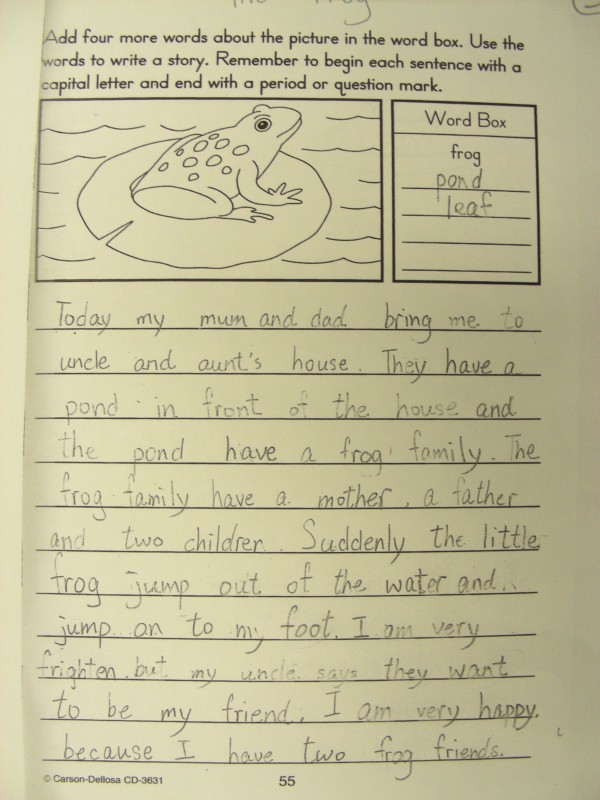 The Frog
Add four more words about the picture in the word box. Use the
words to write a story. Remember to begin each sentence with a
capital letter and end with a period or question mark.
Word Box
frog
pond
leaf
Today my mum and dad bring me to
uncle and aunt's house. They have a
pond in front of the house and
the pond have a frog family. The
frog family have a mother, a father
and two children. Suddenly the little
frog jump out of the water and..
jump on to my foot. I am very
frighten. but my uncle says they want
to be my friend. I am very happy.
because I have two frog friends.
© Carson-Dellosa CD-3631
55